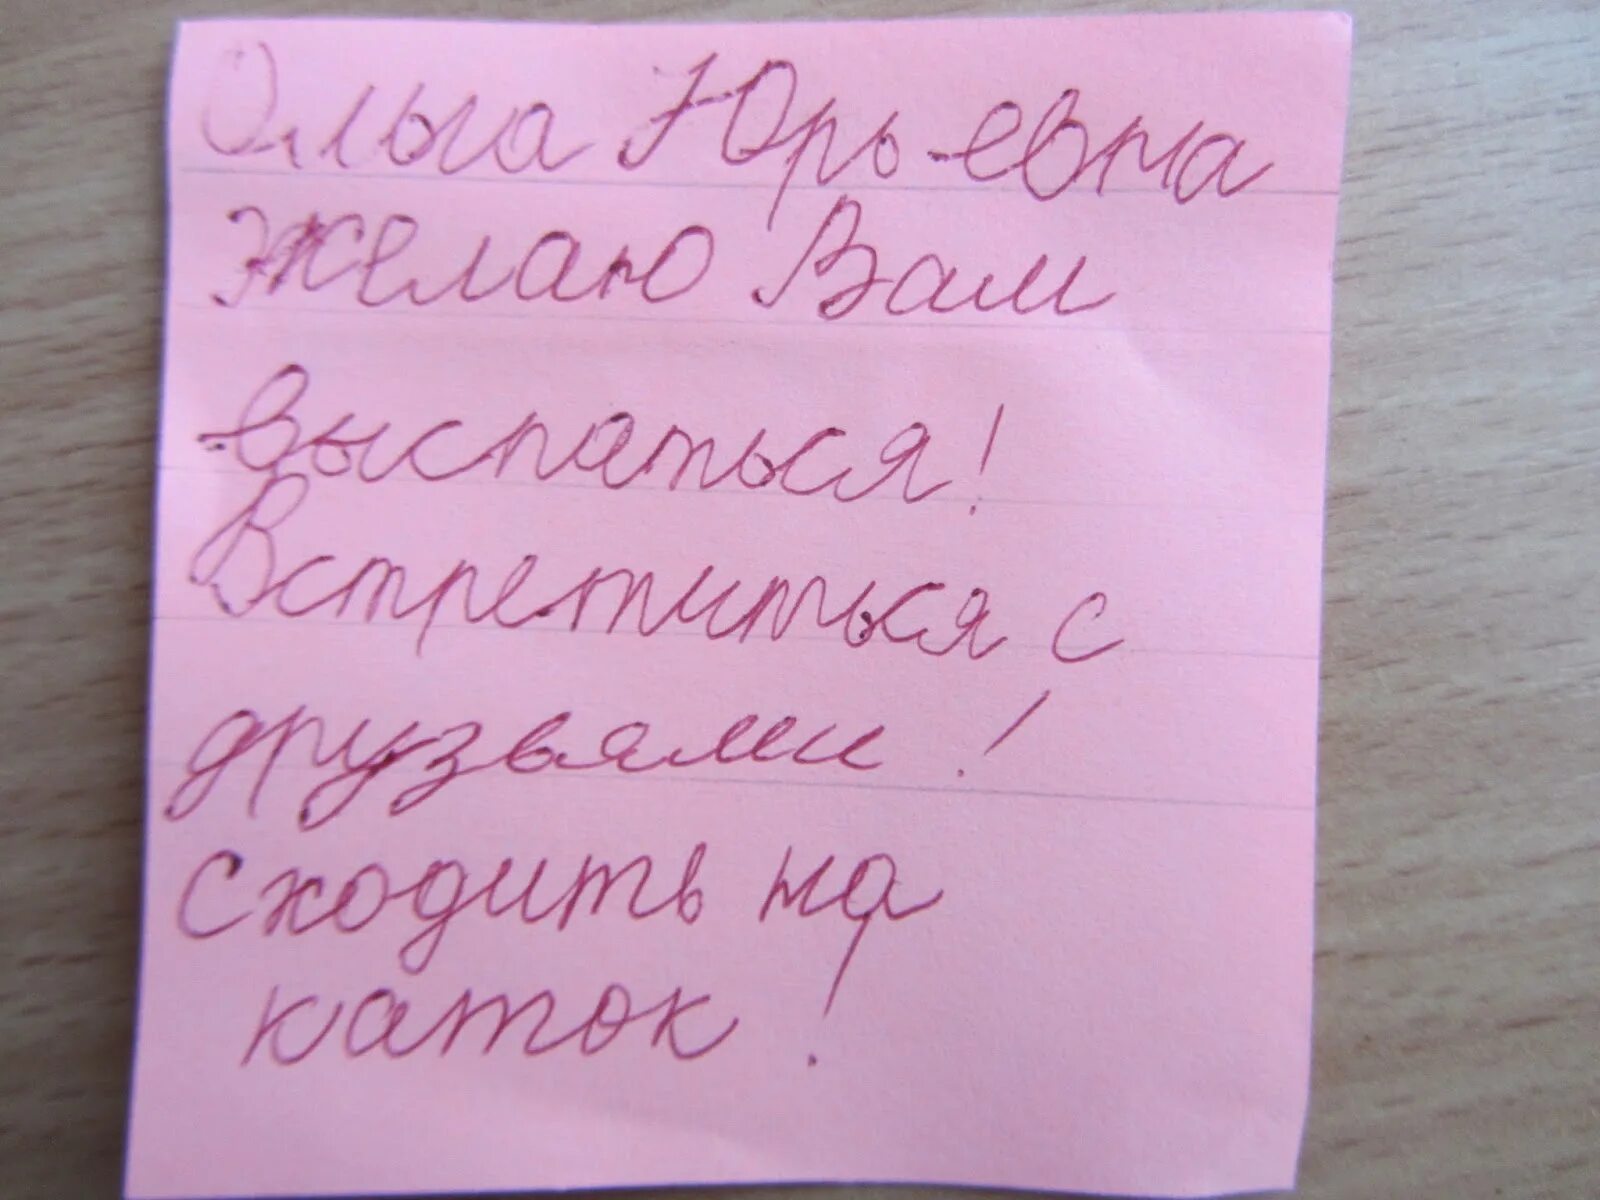 Ольга Юрьевна
желаю Вам
выспаться!
Встретиться с
друзьями!
сходить на
каток!